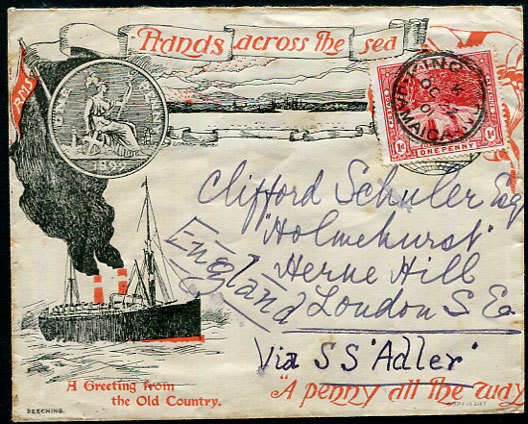 Hands across the sea
R.M.S
ONE PENNY
189
KING
OC
01
JAMAICA
1d ONE PENNY 1d
Clifford Schuler Esq
"Holmehurst"
Herne Hill
London S E
England
Via S S "Adler"
A Greeting from
the Old Country.
"A penny all the way
BEECHING.
COPYRIGHT